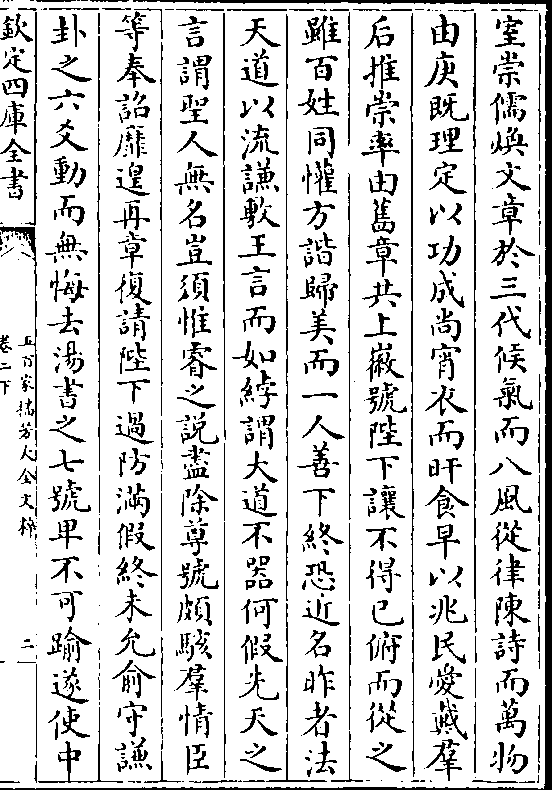 室崇儒煥文章於三代候氣而八風從律陳詩而萬物
由庚既理定以功成尚宵衣而旰食早以兆民愛戴羣
后推崇率由舊章共上徽號陛下讓不得已俯而從之
雖百姓同懽方諧歸美而一人善下終恐近名昨者法
天道以流謙敷王言而如綍謂大道不器何假先天之
言謂聖人無名豈須惟睿之說盡除尊號頗駭羣情臣
等奉詔靡遑再章復請陛下過防滿假終未允俞守謙
卦之六爻動而無悔去湯書之七號卑不可踰遂使中
欽定四庫全書
五百家播芳大全文粹
卷二下
二